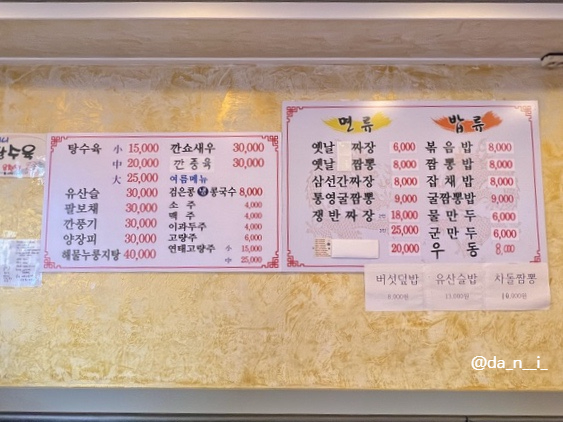 탕수육 小 15,000
中 20,000
大 25,000
유산슬 30,000
팔보채 30,000
깐풍기 30,000
양장피 30,000
해물누룽지탕 40,000
깐쇼새우 30,000
깐중육 30,000
여름메뉴
검은콩 냉 콩국수 8,000
소주 4,000
맥주 4,000
이과두주 4,000
고량주 6,000
연태고량주 小 15,000
中 25,000
면류
옛날 짜장 6,000
옛날 짬뽕 8,000
삼선간짜장 8,000
통영굴짬뽕 9,000
쟁반짜장 18,000
25,000
20,000
밥류
볶음밥 8,000
짬뽕밥 8,000
잡채밥 8,000
굴짬뽕밥 9,000
물만두 6,000
군만두 6,000
우동 8,000
버섯덮밥 유산슬밥 차돌짬뽕
10,000원
@da_n_i_